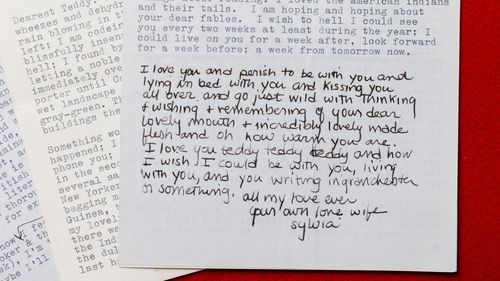 Dearest Teddy.
wheezes and
rain blowing in t
left; I am
blissfully
hell; I found by
immediately
porter until
wet landscape
gray-green. T
buildings the
Something wo
happened; I
phone you;
in the seco
several sa
New Yorker
bagging m
Guinea,
my lovel
there wa
the Indi
the du
last h
and their tails. I am hoping and hoping about
your dear fables. I wish to hell I could see
you every two weeks at least during the year; I
could live on you for a week after, look forward
for a week before; a week from tomorrow now.
I love you and perish to be with you and
lying in bed with you and kissing you
all over and go just wild with thinking
+ wishing + remembering of your dear
lovely mouth + incredibly lovely made
flesh and oh how warm you are.
I love you teddy teddy teddy and how
I wish I could be with you, living
with you, and you writing in granchester
or something. all my love ever
your own love wife
sylvia